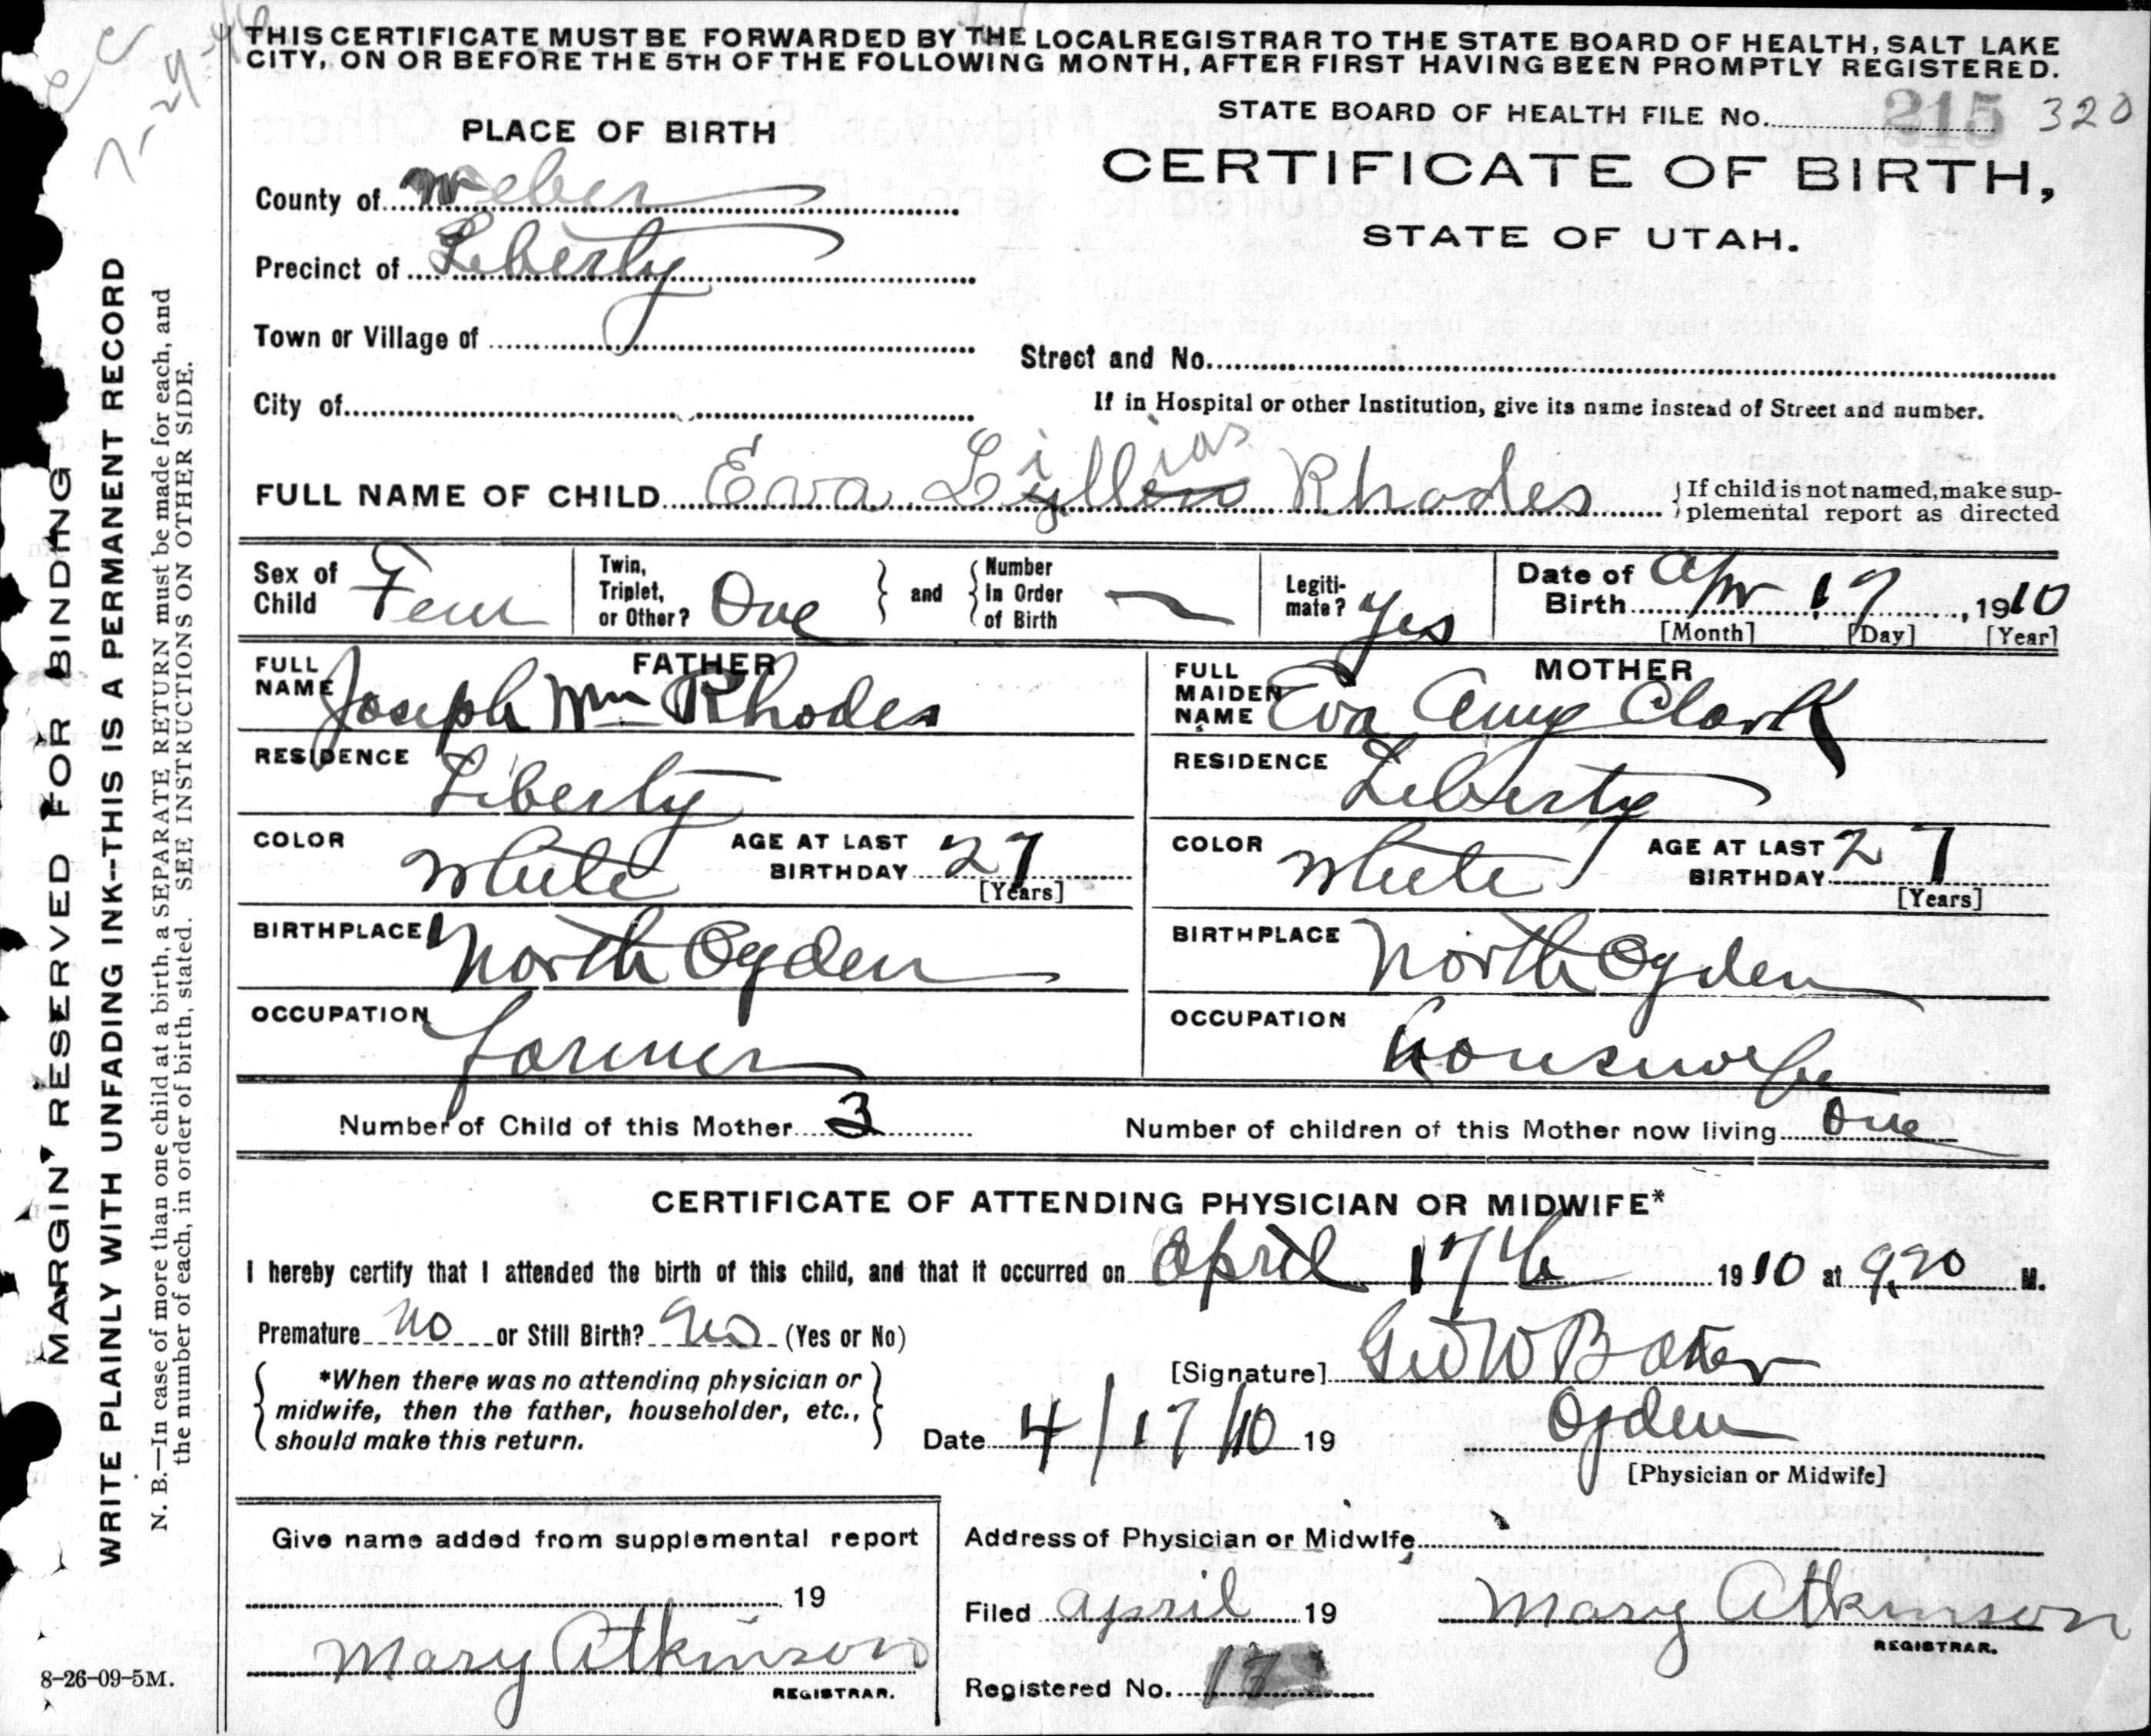 THIS CERTIFICATE MUST BE FORWARDED BY THE LOCAL REGISTRAR TO THE STATE BOARD OF HEALTH, SALT LAKE
CITY, ON OR BEFORE THE 5TH OF THE FOLLOWING MONTH, AFTER FIRST HAVING BEEN PROMPTLY REGISTERED.
STATE BOARD OF HEALTH FILE No. 215 320
PLACE OF BIRTH
CERTIFICATE OF BIRTH,
STATE OF UTAH.
County of Weber
Precinct of Liberty
Town or Village of
Street and No.
City of
If in Hospital or other Institution, give its name instead of Street and number.
ias
FULL NAME OF CHILD Eva Lyllens Rhodes
If child is not named, make sup-
plemental report as directed
Sex of Child Fem
Twin, Triplet, or Other? One and Number In Order of Birth —
Legiti-mate? Yes
Date of Birth Apr 17, 1910
[Month] [Day] [Year]
FATHER
FULL NAME Joseph Wm Rhodes
RESIDENCE Liberty
COLOR White AGE AT LAST BIRTHDAY 27
[Years]
BIRTHPLACE North Ogden
OCCUPATION Farmer
MOTHER
FULL MAIDEN NAME Eva Amy Clark
RESIDENCE Liberty
COLOR White AGE AT LAST BIRTHDAY 27
[Years]
BIRTHPLACE North Ogden
OCCUPATION housewife
Number of Child of this Mother 3
Number of children of this Mother now living One
CERTIFICATE OF ATTENDING PHYSICIAN OR MIDWIFE*
I hereby certify that I attended the birth of this child, and that it occurred on April 17th 1910 at 9,20 M.
Premature no or Still Birth? no (Yes or No)
*When there was no attending physician or
midwife, then the father, householder, etc.,
should make this return.
[Signature] Geo W Baker
Date 4/17/10 19
Ogden
[Physician or Midwife]
Give name added from supplemental report
19
Mary Atkinson
REGISTRAR.
Address of Physician or Midwife
Filed April 19
Mary Atkinson
REGISTRAR.
Registered No. 17
MARGIN RESERVED FOR BINDING
WRITE PLAINLY WITH UNFADING INK--THIS IS A PERMANENT RECORD
N. B.—In case of more than one child at a birth, a SEPARATE RETURN must be made for each, and
the number of each, in order of birth, stated. SEE INSTRUCTIONS ON OTHER SIDE.
8-26-09-5M.